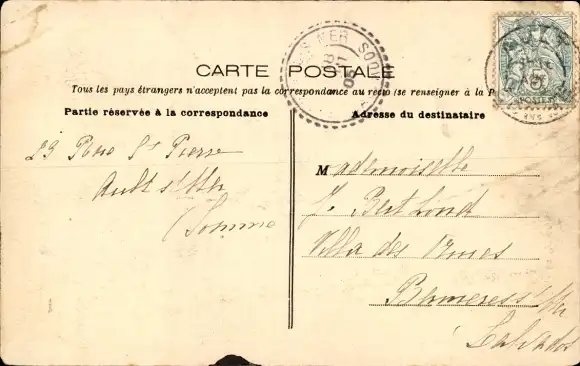 CARTE POSTALE
Tous les pays étrangers n'acceptent pas la correspondance au recto (se renseigner à la P
Partie réservée à la correspondance
Adresse du destinataire
23 Rue St Pierre
Ault s/Mer
(Somme
Mademoiselle
J. Berthond
Villa des
s/Mer
Calvados
AULT